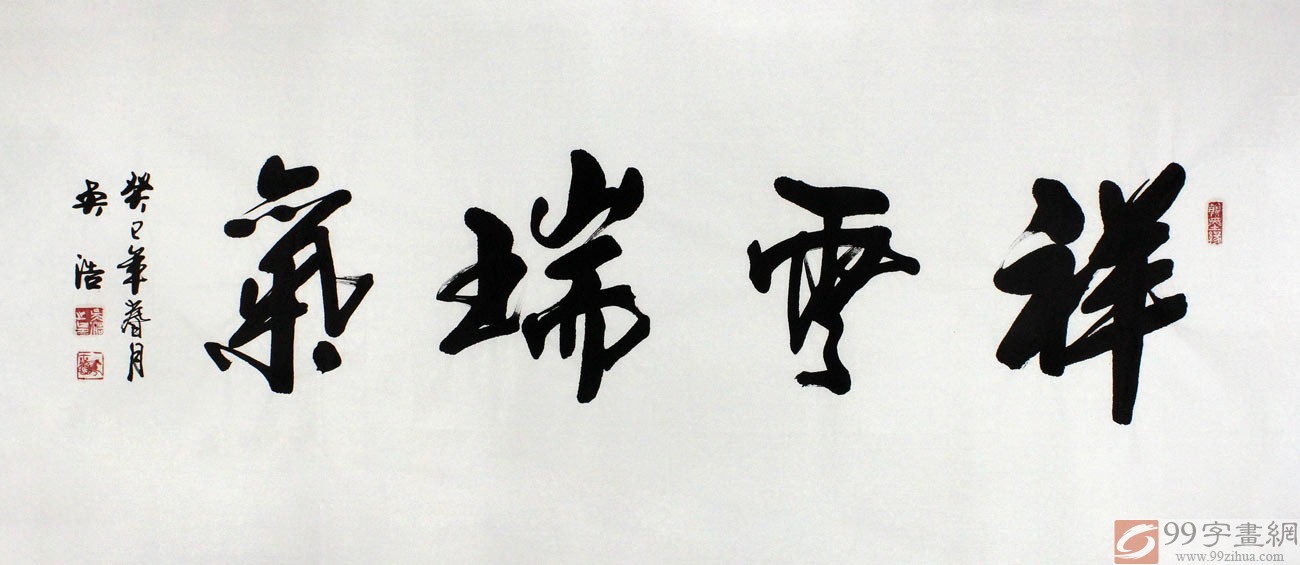 祥雲瑞氣
癸巳年春月
吴浩
99字畫網
www.99zihua.com